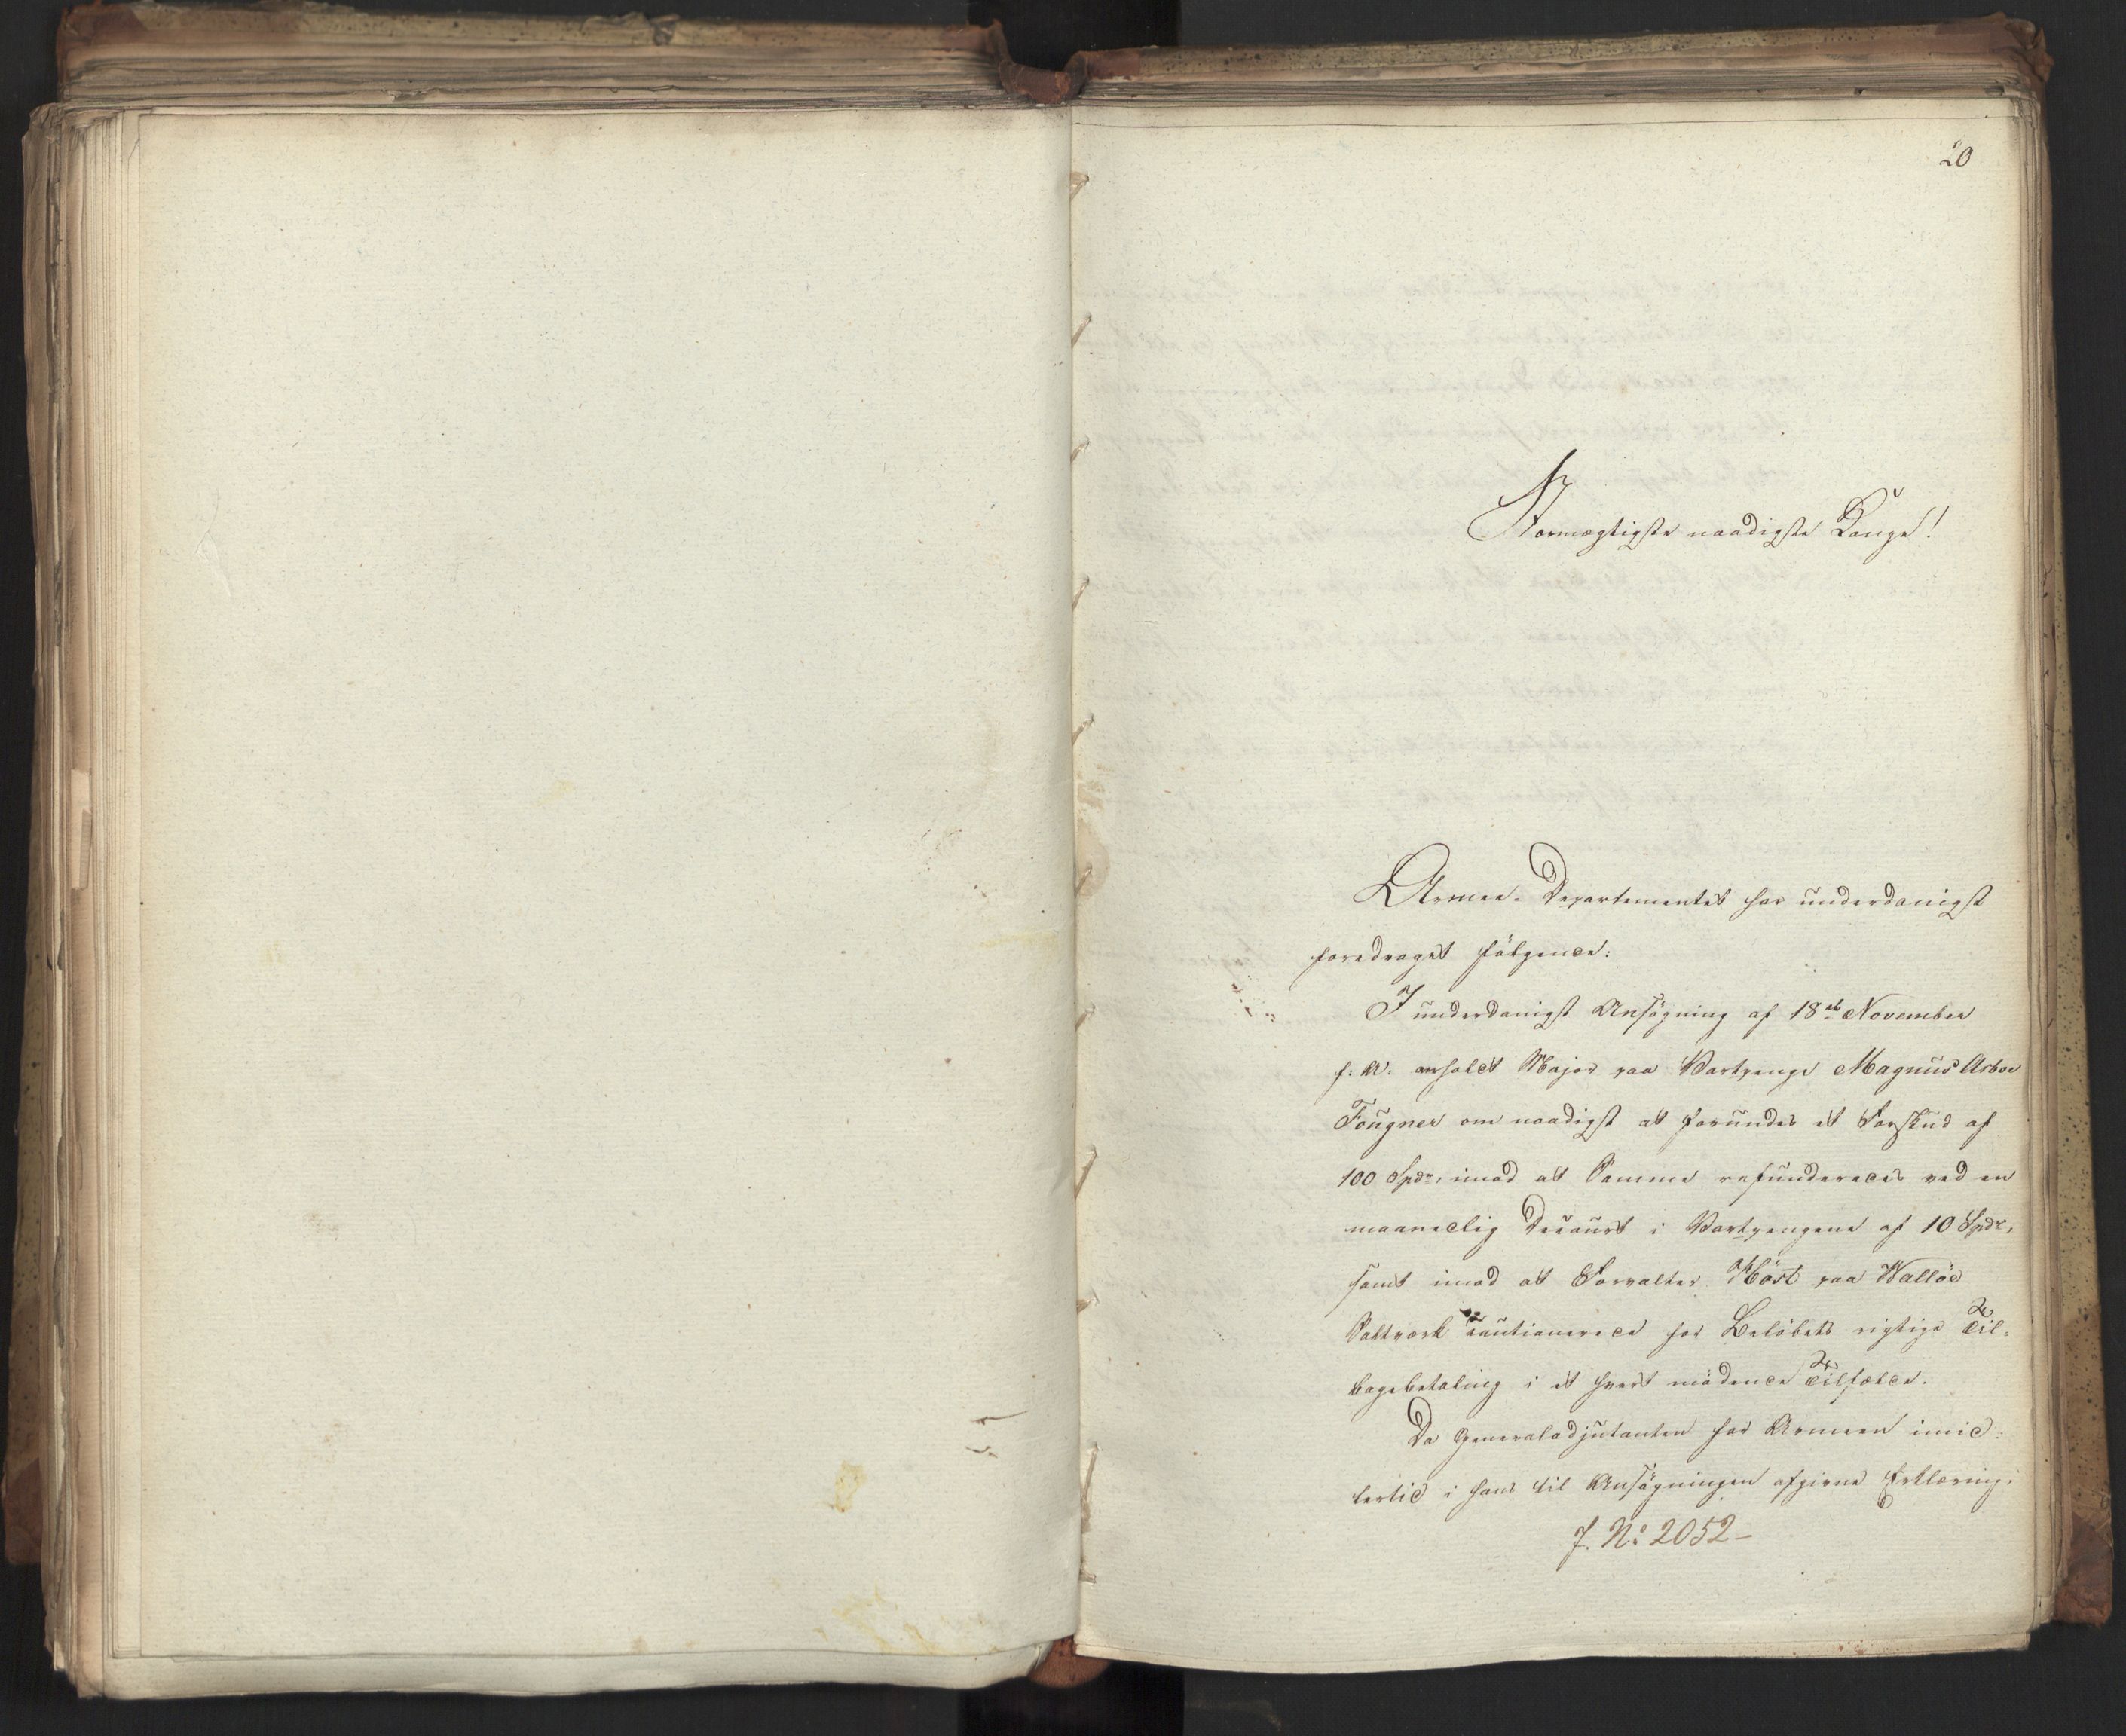 20
Stormægtigste naadigste Konge!
Armee-Departementet har underdanigst
foredraget følgende:
I underdanigst Ansøgning af 18de November
f: A: anholdt Major paa Vartpenge Magnus Arboe
Fougner om naadigst at forundes et Forskud af
100 Spdr, imod at Samme refunderedes ved en
maanedlig Decourt i Vartpengene af 10 Spdr,
samt imod at Forvalter Høst paa Walløe
Saltværk cautionerede for Beløbets rigtige Til-
bagebetaling i et hvert mødende Tilfælde.
Da Generaladjutanten for Armeen imid-
lertid i hans til Ansøgningen afgivne Erklæring,
J. No 2052-